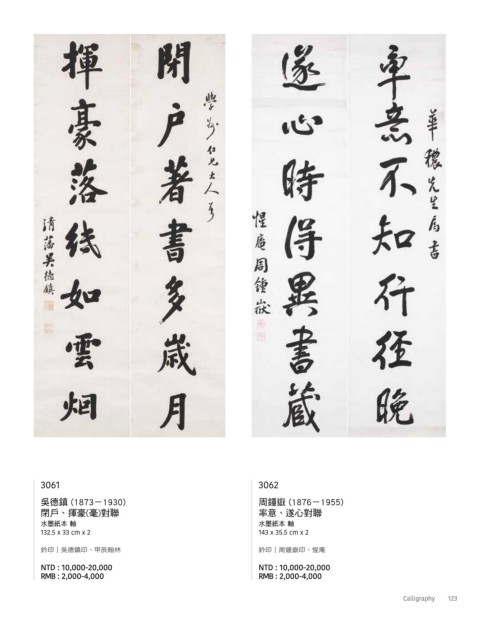 閉戶著書多歲月
仁兄大人
揮豪落紙如雲烟
清藩吳德鎮
率意不知行徑晚
華穠先生
遂心時得異書藏
惺庵周鍾嶽
3061
吳德鎮 (1873－1930)
閉戶、揮豪(毫)對聯
水墨紙本 軸
132.5 x 33 cm x 2
鈐印｜吳德鎮印、甲辰翰林
NTD : 10,000-20,000
RMB : 2,000-4,000
3062
周鍾嶽 (1876－1955)
率意、遂心對聯
水墨紙本 軸
143 x 35.5 cm x 2
鈐印｜周鍾嶽印、惺庵
NTD : 10,000-20,000
RMB : 2,000-4,000
Calligraphy 123